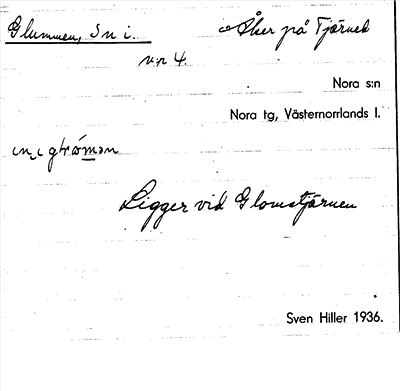 Glummen, S n i. Åker på Tjärned
n:r 4.
Nora s:n
Nora tg, Västernorrlands l.
Ligger vid Glomstjärnen
Sven Hiller 1936.